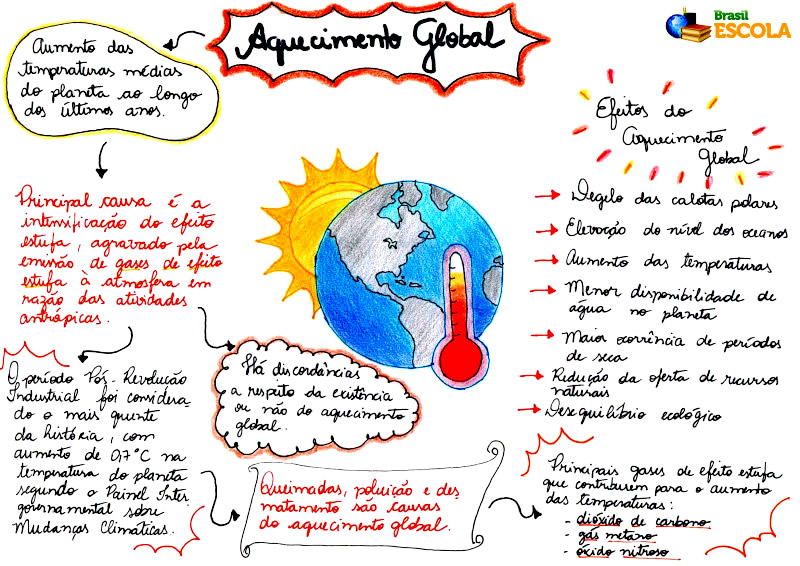 Aquecimento Global
Brasil
ESCOLA
Aumento das
temperaturas médias
do planeta ao longo
dos últimos anos.
Principal causa é a
intensificação do efeito
estufa, agravado pela
emissão de gases de efeito
estufa à atmosfera em
razão das atividades
antrópicas.
O período Pós-Revolução
Industrial foi considera
do o mais quente
da história, com
aumento de 0,7°C na
temperatura do planeta
segundo o Painel Inter
governamental sobre
Mudanças Climáticas.
Há discordâncias
a respeito da existência
ou não do aquecimento
global.
Queimadas, poluição e des
matamento são causas
do aquecimento global.
Efeitos do
Aquecimento
Global
Degelo das calotas polares
Elevação do nível dos oceanos
Aumento das temperaturas
Menor disponibilidade de
água no planeta
Maior ocorrência de períodos
de seca
Redução da oferta de recursos
naturais
Desequilíbrio ecológico
Principais gases de efeito estufa
que contribuem para o aumento
das temperaturas:
- dióxido de carbono
- gás metano
- óxido nitroso